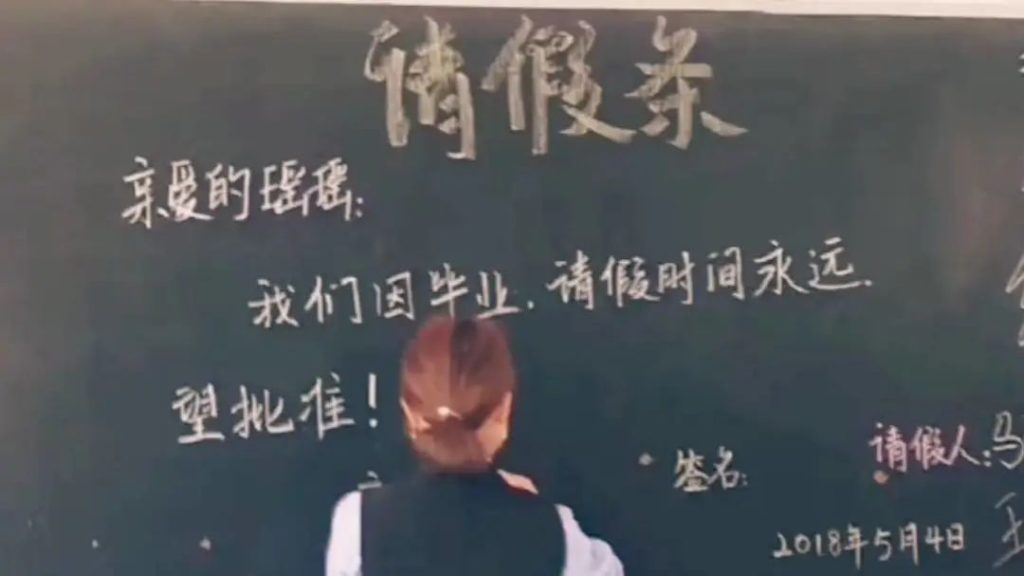 请假条
亲爱的瑶瑶:
我们因毕业,请假时间永远.
望批准!
签名:
请假人:马
2018年5月4日
王